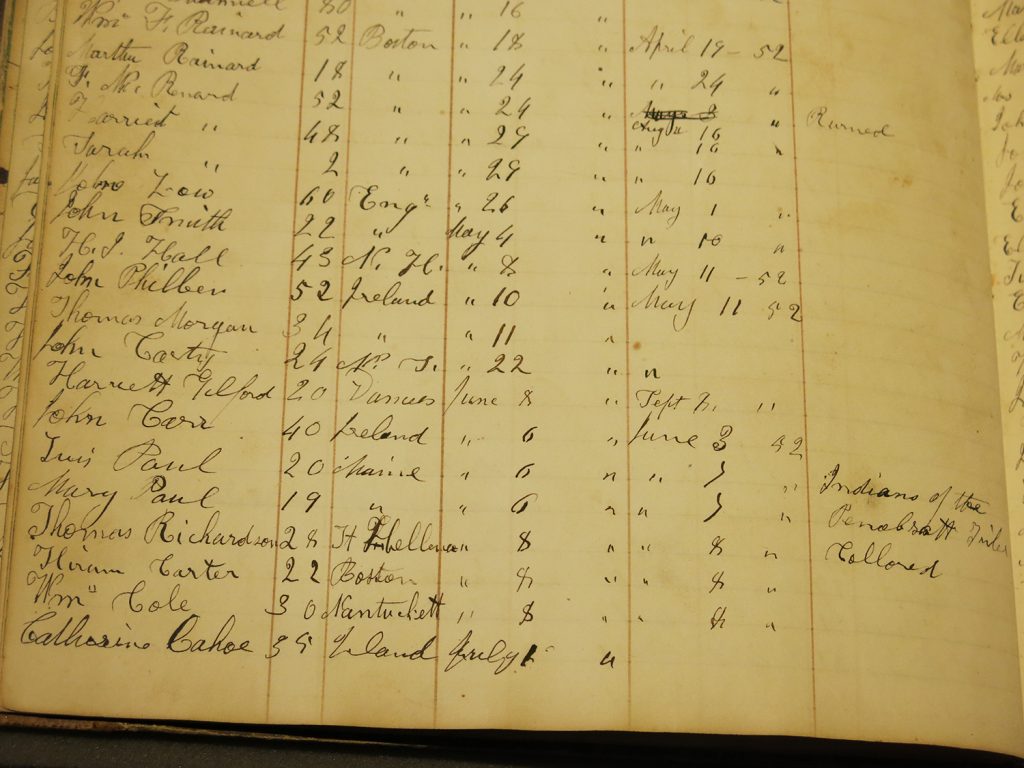 80 " " 16 "
Wm F. Rainard 52 Boston " 18 " April 19 - 52
Martha Rainard 18 " " 24 " " 24 "
F. Mc Renard 52 " " 24 " Aug " 10 " Runned
Harriet " 48 " " 29 " " 10 "
Sarah " 2 " " 29 " " 10
John Low 60 Engn " 26 " May 1 "
John Smith 22 " May 4 " " 10 "
H. J. Hall 43 N. H. " 8 " May 11 - 52
John Philben 52 Ireland " 10 " May 11 52
Thomas Morgan 34 " " 11 "
John Carty 24 " 22 " "
Harriett Gilford 20 June 8 " Sept 8. "
John Carr 40 Ireland " 6 " June 3 52
Luis Paul 20 Maine " 6 " " 7 " Indians of the
Mary Paul 19 " " 6 " " 7 " Penobscott Tribe
Thomas Richardson 28 St Hellena " 8 " " 8 " Collored
Hiram Carter 22 Boston " 8 " " 8 "
Wm Cole 30 Nantuckett " 8 " " 8 "
Catherine Cahoe 35 Ireland July 1 "